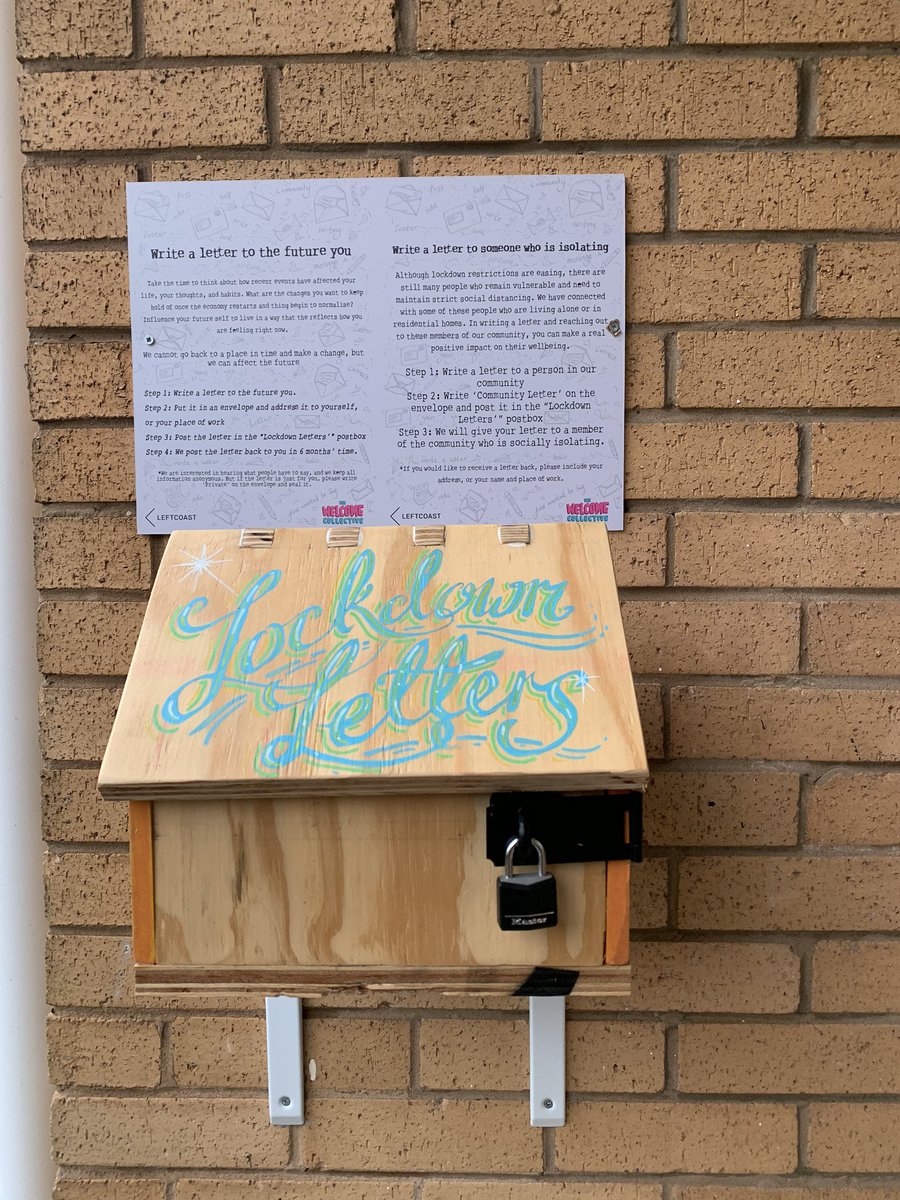 Write a letter to the future you
Take the time to think about how recent events have affected your
life, your thoughts, and habits. What are the changes you want to keep
hold of once the economy restarts and thing begin to normalise?
Influence your future self to live in a way that the reflects how you
are feeling right now.
We cannot go back to a place in time and make a change, but
we can affect the future
Step 1: Write a letter to the future you.
Step 2: Put it in an envelope and address it to yourself,
or your place of work
Step 3: Post the letter in the "Lockdown Letters'" postbox
Step 4: We post the letter back to you in 6 months' time.
*We are interested in hearing what people have to say, and we keep all
information anonymous. But if the letter is just for you, please write
'Private' on the envelope and seal it.
LEFTCOAST
THE
WELCOME
COLLECTIVE
Write a letter to someone who is isolating
Although lockdown restrictions are easing, there are
still many people who remain vulnerable and need to
maintain strict social distancing. We have connected
with some of these people who are living alone or in
residential homes. In writing a letter and reaching out
to these members of our community, you can make a real
positive impact on their wellbeing.
Step 1; Write a letter to a person in our
community
Step 2: Write 'Community Letter' on the
envelope and post it in the "Lockdown
Letters'" postbox
Step 3: We will give your letter to a member
of the community who is socially isolating.
*If you would like to receive a letter back, please include your
address, or your name and place of work.
LEFTCOAST
THE
WELCOME
COLLECTIVE
Lockdown
Letters
Master